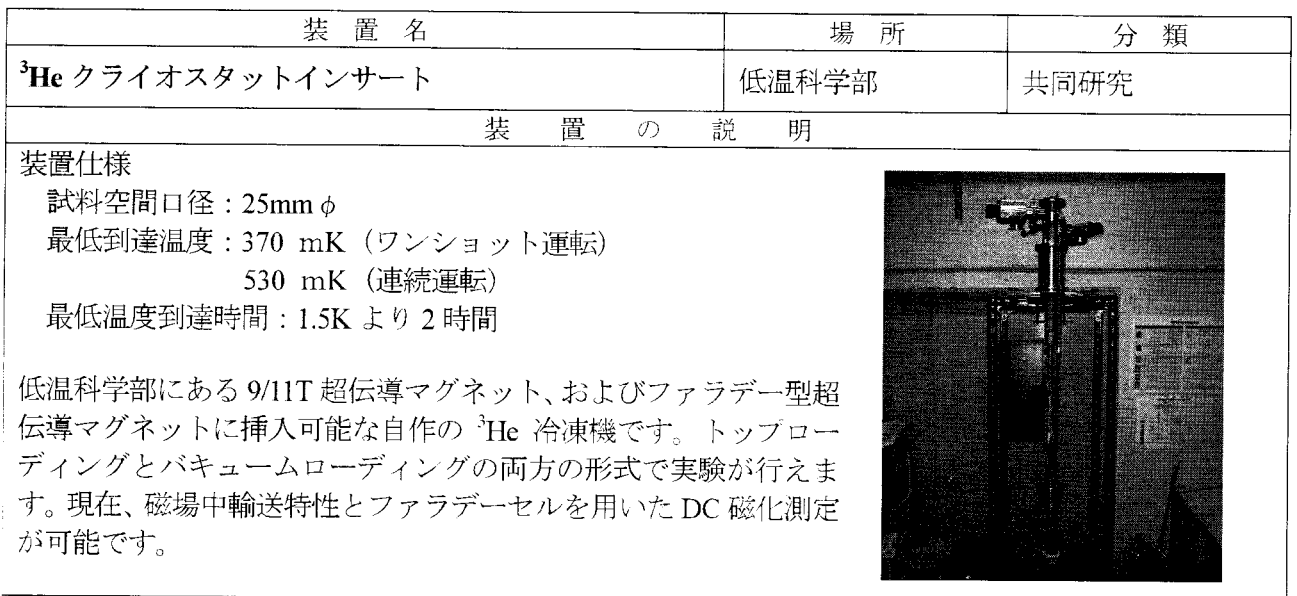 装 置 名 場 所 分 類
³He クライオスタットインサート 低温科学部 共同研究
装 置 の 説 明
装置仕様
試料空間口径：25mmφ
最低到達温度：370 mK（ワンショット運転）
530 mK（連続運転）
最低温度到達時間：1.5K より 2 時間
低温科学部にある 9/11T 超伝導マグネット、およびファラデー型超
伝導マグネットに挿入可能な自作の ³He 冷凍機です。トップロー
ディングとバキュームローディングの両方の形式で実験が行えま
す。現在、磁場中輸送特性とファラデーセルを用いた DC 磁化測定
が可能です。